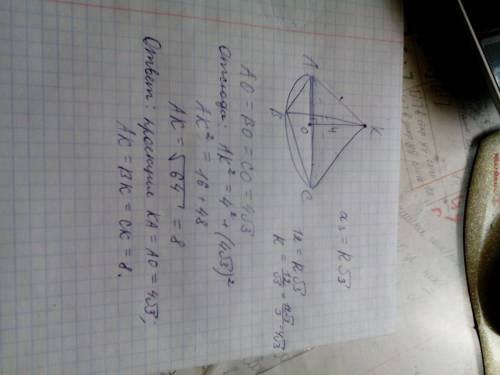 A
B
O
4
K
C
a₃ = R√3
12 = R√3
R = 12/√3 = 12√3/3 = 4√3
AO = BO = CO = 4√3
Отсюда: AK² = 4² + (4√3)²
AK² = 16 + 48
AK = √64 = 8
Ответ: проекция KA = AO = 4√3;
AK = BK = CK = 8.